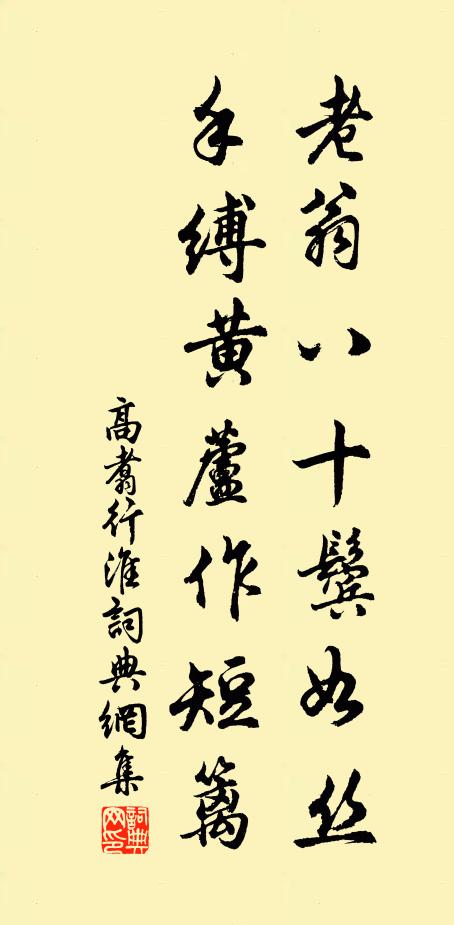 老翁八十鬓如丝
手縛黄蘆作短籬
高翥行淮詞典網集
詞典網印